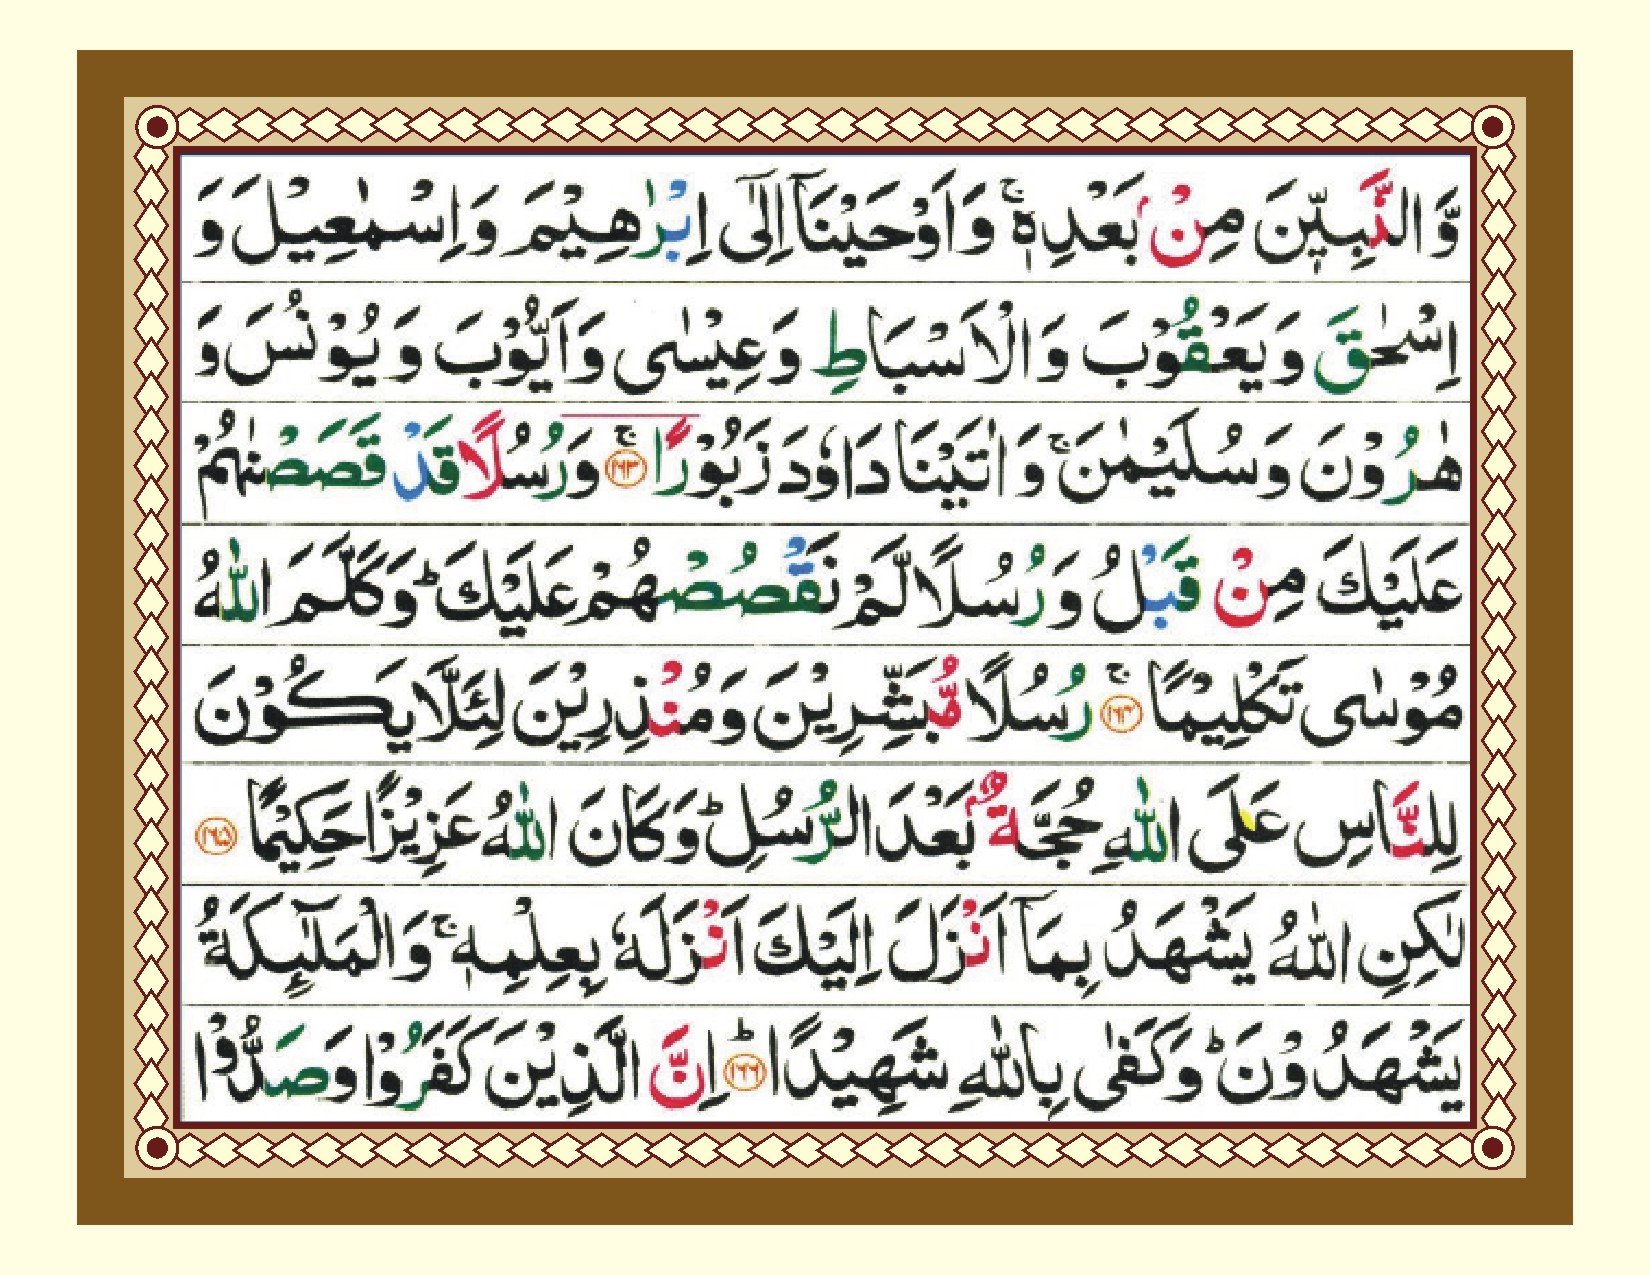 وَّالنَّبِیّٖنَ مِنْۢ بَعْدِهٖ ۚ وَاَوْحَیْنَاۤ اِلٰۤی اِبْرٰهِیْمَ وَاِسْمٰعِیْلَ وَ
اِسْحٰقَ وَیَعْقُوْبَ وَالْاَسْبَاطِ وَعِیْسٰی وَاَیُّوْبَ وَیُوْنُسَ وَ
هٰرُوْنَ وَسُلَیْمٰنَ ۚ وَاٰتَیْنَا دَاوٗدَ زَبُوْرًا ۚ﴿۱۶۳﴾ وَرُسُلًا قَدْ قَصَصْنٰهُمْ
عَلَیْكَ مِنْ قَبْلُ وَرُسُلًا لَّمْ نَقْصُصْهُمْ عَلَیْكَ ؕ وَكَلَّمَ اللّٰهُ
مُوْسٰی تَكْلِیْمًا ۚ﴿۱۶۴﴾ رُسُلًا مُّبَشِّرِیْنَ وَمُنْذِرِیْنَ لِئَلَّا یَكُوْنَ
لِلنَّاسِ عَلَی اللّٰهِ حُجَّةٌۢ بَعْدَ الرُّسُلِ ؕ وَكَانَ اللّٰهُ عَزِیْزًا حَكِیْمًا ﴿۱۶۵﴾
لٰكِنِ اللّٰهُ یَشْهَدُ بِمَاۤ اَنْزَلَ اِلَیْكَ اَنْزَلَهٗ بِعِلْمِهٖ ۚ وَالْمَلٰٓىِٕكَةُ
یَشْهَدُوْنَ ؕ وَكَفٰی بِاللّٰهِ شَهِیْدًا ؕ﴿۱۶۶﴾ اِنَّ الَّذِیْنَ كَفَرُوْا وَصَدُّوْا